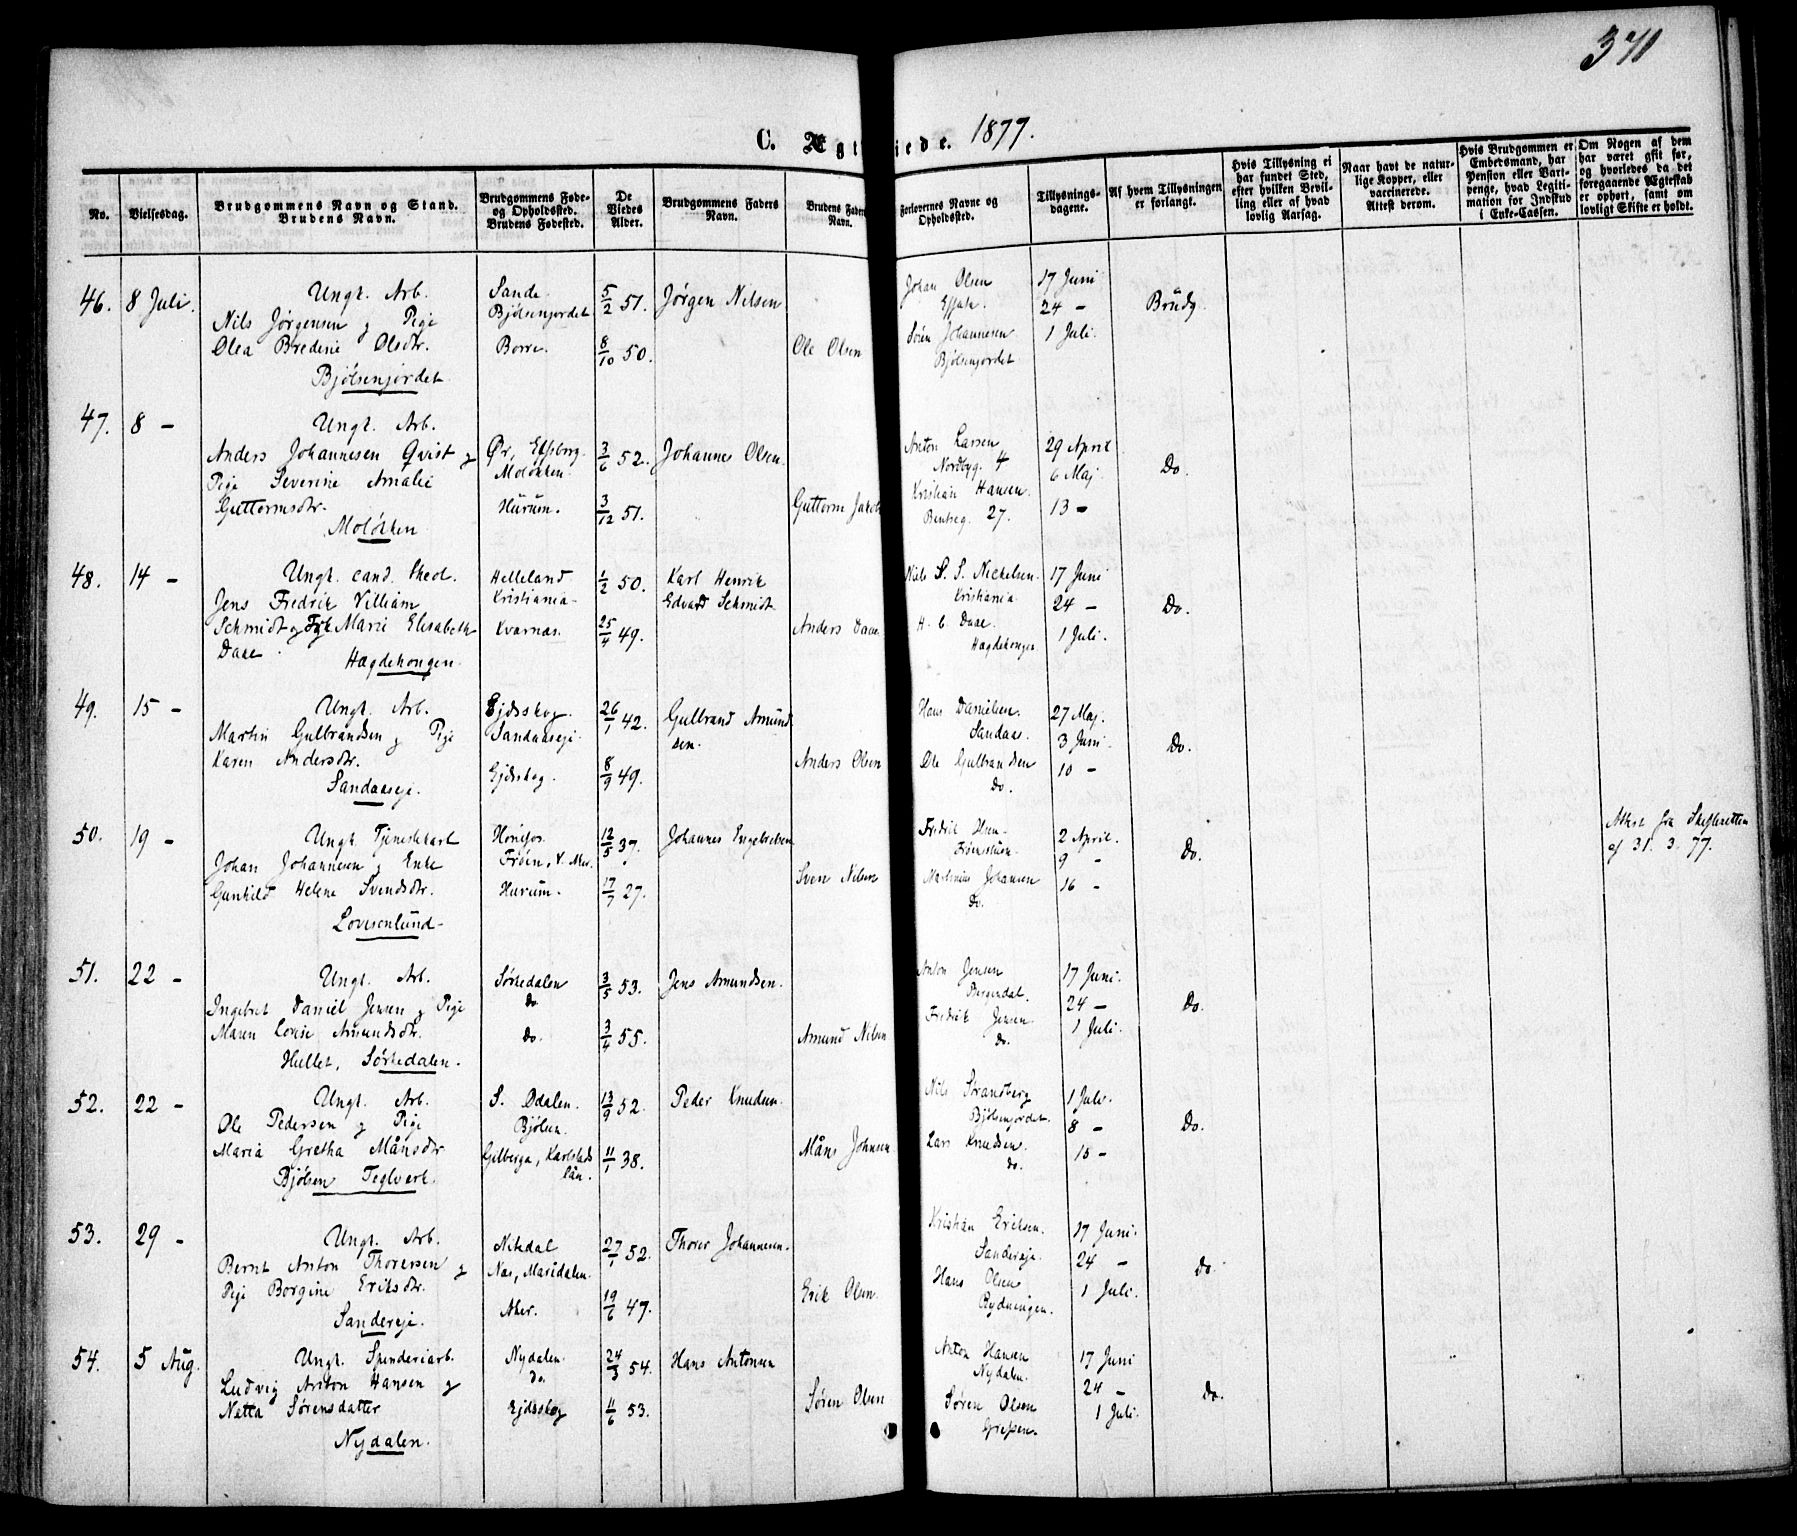 371
C. Ægt iede. 1877.
No.
Vielsesdag.
Brudgommens Navn og Stand.
Brudens Navn.
Brudgommens Føde-
og Opholdssted.
Brudens Fødested.
De
Viedes
Alder.
Brudgommens Faders
Navn.
Brudens Faders
Navn.
Forlovernes Navne og
Opholdssted.
Tillysnings-
dagene.
Af hvem Tillysningen
er forlangt.
Hvis Tillysning ei
har fundet Sted,
efter hvilken Bevil-
ling eller af hvad
lovlig Aarsag.
Naar havt de natur-
lige Kopper, eller
vaccinerede.
Attest derom.
Hvis Brudgommen er
Embedsmand, har
Pension eller Vart-
penge, hvad Legiti-
mation for Indskud
i Enke-Cassen.
Om Nogen af dem
har været gift før,
og hvorledes da det
foregaaende Ægteskab
er ophørt, samt om
lovligt Skifte er holdt.
46. 8 Juli. Ungk. Arb.
Nils Jørgensen og Pige
Olea Bredine Olsdtr.
Bjølsenjordet
Sande
Bjølsenjordet
Borre.
5/2 51.
8/10 50.
Jørgen Nilsen
Ole Olsen
Johan Olsen
Søren Johannesen
Bjølsenjordet
17 Juni
24 —
1 Juli.
Brudg.
47. 8 — Ungk. Arb.
Anders Johannesen Qvist og
Pige Severine Amalie
Guttormsdtr.
Moløkken
Ør, Elfsborg.
Moløkken.
Hurum.
3/6 52.
3/12 51.
Johannes Olsen.
Guttorm Jakob
Anton Larsen
Nordbyg. 4
Kristian Hansen.
Bentseg. 27.
29 April
6 Maj.
13 —
Do.
48. 14 — Ungk. cand. theol.
Jens Fredrik Villiam
Schmidt og Frk. Marie Elisabeth
Daae.
Hagdehougen.
Helleland
Kristiania
Kvarnæs.
1/2 50.
25/4 49.
Karl Henrik
Edvard Schmidt
Anders Daae
Niels S. S. Nickelsen.
Kristiania
H. C. Daae.
Hagdehougen
17 Juni
24 —
1 Juli.
Do.
49. 15 — Ungk. Arb.
Martin Gulbrandsen og Pige
Karen Andersdtr.
Sandaaseje.
Ejdsskog.
Sandaaseje.
Ejdskog.
26/1 42.
8/9 49.
Gulbrand Amund
sen.
Anders Olsen
Hans Danielsen.
Sandaas.
Ole Gulbrandsen
do.
27 Maj.
3 Juni.
10 —
Do.
50. 19 — Ungk. Tjenestekarl
Johan Johannesen og Enke
Gunhild Helene Svendsdtr.
Lovisenlund
Hønefos.
Frøen, V. Aker.
Hurum.
12/5 37.
17/7 27.
Johannes Engebretsen
Sven Nilsen
Fredrik
Martinius Johansen
do.
2 April.
9 —
16 —
Do.
Attest fra Skifteretten
af 31. 3. 77.
51. 22 — Ungk. Arb.
Ingebret Daniel Jensen og Pige
Maren Lovise Amundsdtr.
Hullet, Sørkedalen.
Sørkedalen
do
do.
3/5 53.
3/4 55.
Jens Amundsen.
Amund Nilsen
Anton Jensen
Bergendal.
Fredrik Jensen.
do.
17 Juni.
24 —
1 Juli.
Do.
52. 22 — Ungk. Arb.
Ole Pedersen og Pige
Maria Gretha Månsdtr
Bjølsen Teglverk.
S. Odalen.
Bjølsen.
Gilberga, Karlstads
län.
13/9 52.
11/1 38.
Peder Knudsen.
Måns Johnsen
Nils Strandberg
Bjølsenjordet.
Lars Knudsen.
do.
1 Juli.
8 —
15 —
Do.
53. 29 — Ungk. Arb.
Bernt Anton Thoresen og
Pige Borgine Eriksdtr.
Sandereje.
Nitedal
Næs, Maridalen.
Aker.
27/1 52.
19/6 47.
Thorer Johannesen.
Erik Olsen.
Kristian Eriksen.
Sandereje.
Hans Olsen
Rydningen.
17 Juni.
24 —
1 Juli.
Do.
54. 5 Aug. Ungk. Spinderiarb.
Ludvig Anton Hansen og
Netta Sørensdatter
Nydalen.
Nydalen.
do
Ejdsskog
24/3 54.
11/6 53.
Hans Antonsen
Søren Olsen
Anton Hansen
Nydalen.
Søren Olsen
Grefsen.
17 Juni
24 —
1 Juli.
Do.